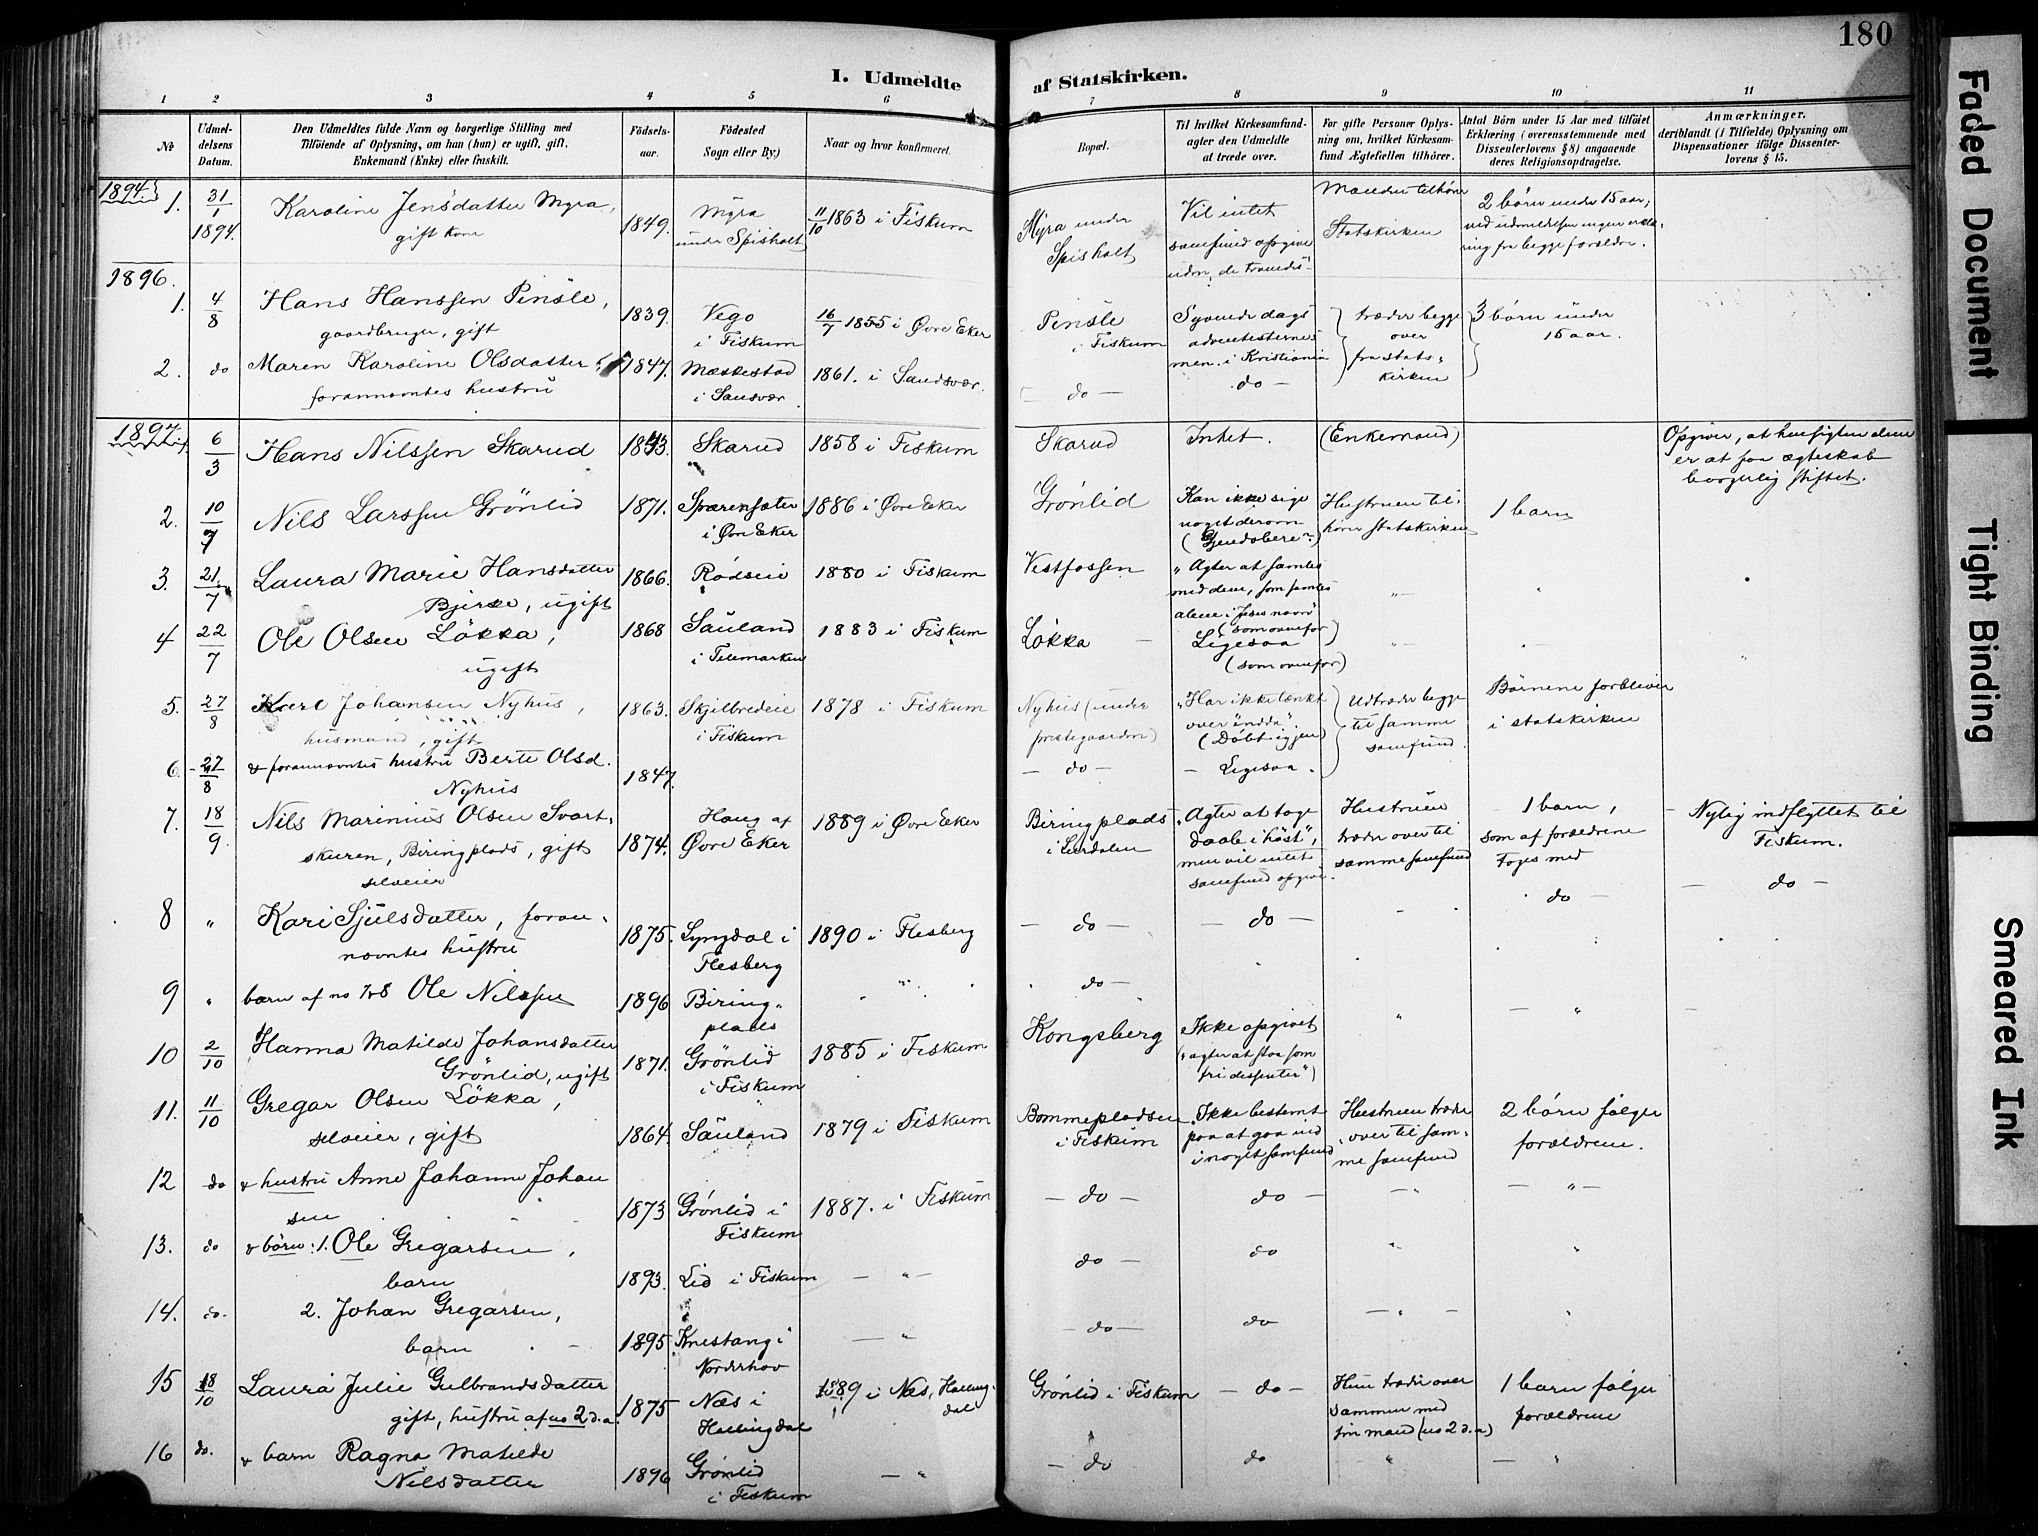 180
I. Udmeldte af Statskirken.
1 2 3 4 5 6 7 8 9 10 11
No
Udmeldelsens Datum.
Den Udmeldtes fulde Navn og borgerlige Stilling med
Tilføiende af Oplysning, om han (hun) er ugift, gift,
Enkemand (Enke) eller fraskilt.
Fødselsaar.
Fødested
Sogn eller By.)
Naar og hvor konfirmeret.
Bopæl.
Til hvilket Kirkesamfund
agter den Udmeldte
at træde over.
For gifte Personer Oplysning om, hvilket Kirkesamfund Ægtefællen tilhører.
Antal Børn under 15 Aar med tilføiet
Erklæring (overensstemmende med
Dissenterlovens § 8) angaaende
deres Religionsopdragelse.
Anmærkninger,
deriblandt (i Tilfælde) Oplysning om
Dispensationer ifølge Dissenterlovens § 15.
1894
1. 31/1 1894. Karoline Jensdatter Myra, gift kone 1849. Myra under Spisholt 11/10 1863 i Fiskum Myra under Spisholt Vil intet samfund opgive Manden tilhører Statskirken 2 børn under 15 aar; ved udmeldelsen ingen erklæring fra begge forældre.
1896.
1. 4/8 Hans Hanssen Pinsle, gaardbruger, gift 1839. Vego i Fiskum 16/7 1855 i Øvre Eker Pinsle i Fiskum Syvende dags adventisternes men. i Kristiania træder begge over fra statskirken 3 børn under 15 aar.
2. do Maren Karoline Olsdatter, forannævntes hustru 1847. Mæskestad i Sandsvær 1861. i Sandsvær. do do
1897
1. 6/3 Hans Nilssen Skarud 1843 Skarud 1858 i Fiskum Skarud Intet. (Enkemand) Opgiver, at hensigten dermed er at faa ægteskab borgerlig stiftet.
2. 10/7 Nils Larssen Grønlid 1871. Spærensæter i Øvre Eker 1886 i Øvre Eker Grønlid Kan ikke sige noget derom (Gjendøbere) Hustruen tilhører statskirken 1 barn
3. 21/7 Laura Marie Hansdatter Bjerke, ugift 1866. Rødseie 1880 i Fiskum Vestfossen "Agter at samles med dem, som samles alene i Jesu navn" (som ovenfor) "
4 22/7 Ole Olsen Løkka, ugift 1868 Sauland i Telemarken 1883 i Fiskum Løkka Ligesaa (som ovenfor) "
5. 27/8 Johansen Nyhus, husmand, gift 1863. Skjelbredeie i Fiskum 1878 i Fiskum Nyhus (under præstegaarden) "Har ikke tænkt over ændda". (Døbt igjen) Udtræder begge til samme samfund. Børnene forbliver i statskirken
6. 27/8 & forannævntes hustru Berte Olsd. Nyhus 1847. do Ligesaa.
7. 18/9 Nils Marinius Olsen Svartskuren, Biringplads, gift selveier 1874. Haug af Øvre Eker 1889 i Øvre Eker Biringplads i Lurdalen "Agter at tage daab i høst", men vil intet samfund opgive. Hustruen træder over til samme samfund 1 barn, som af forældrene toges med Nylig indflyttet til Fiskum.
8 " Kari Sjulsdatter, forannævntes hustru 1875. Lyngdal i Flesberg 1890 i Flesberg do do do do
9 " barn af no 7 & 8 Ole Nilssen 1896 Biringplads " do
10 2/10 Hanna Matilde Johansdatter Grönlid, ugift 1871. Grönlid i Fiskum 1885 i Fiskum Kongsberg Ikke opgivet ("agter at staa som fri dissenter") " "
11. 11/10 Gregar Olsen Løkka, selveier, gift 1864. Sauland 1879 i Fiskum Bommepladsen i Fiskum Ikke bestemt paa at gaa ind i noget samfund Hustruen træder over til samme samfund 2 børn følger forældrene.
12 do & hustru Anne Johanne Johansen 1873 Grönlid i Fiskum 1887. i Fiskum do do " "
13. do & børn: 1. Ole Gregarsen, barn 1893. Lid i Fiskum " do do " "
14. do. 2. Johan Gregarsen, barn 1895. Knestang i Norderhov " do do " "
15 18/10 Laura Julie Gulbrandsdatter gift, hustru af no 2 d.a. 1875 Næs i Hallingdal 1889 i Næs, Hallingdal Grönlid i Fiskum do Hun træder over sammen med sin mand (no 2 d.a) 1 barn følger forældrene
16 do. & barn Ragna Matilde Nilsdatter 1896 Grönlid i Fiskum " do do " "
Faded Document
Tight Binding
Smeared Ink